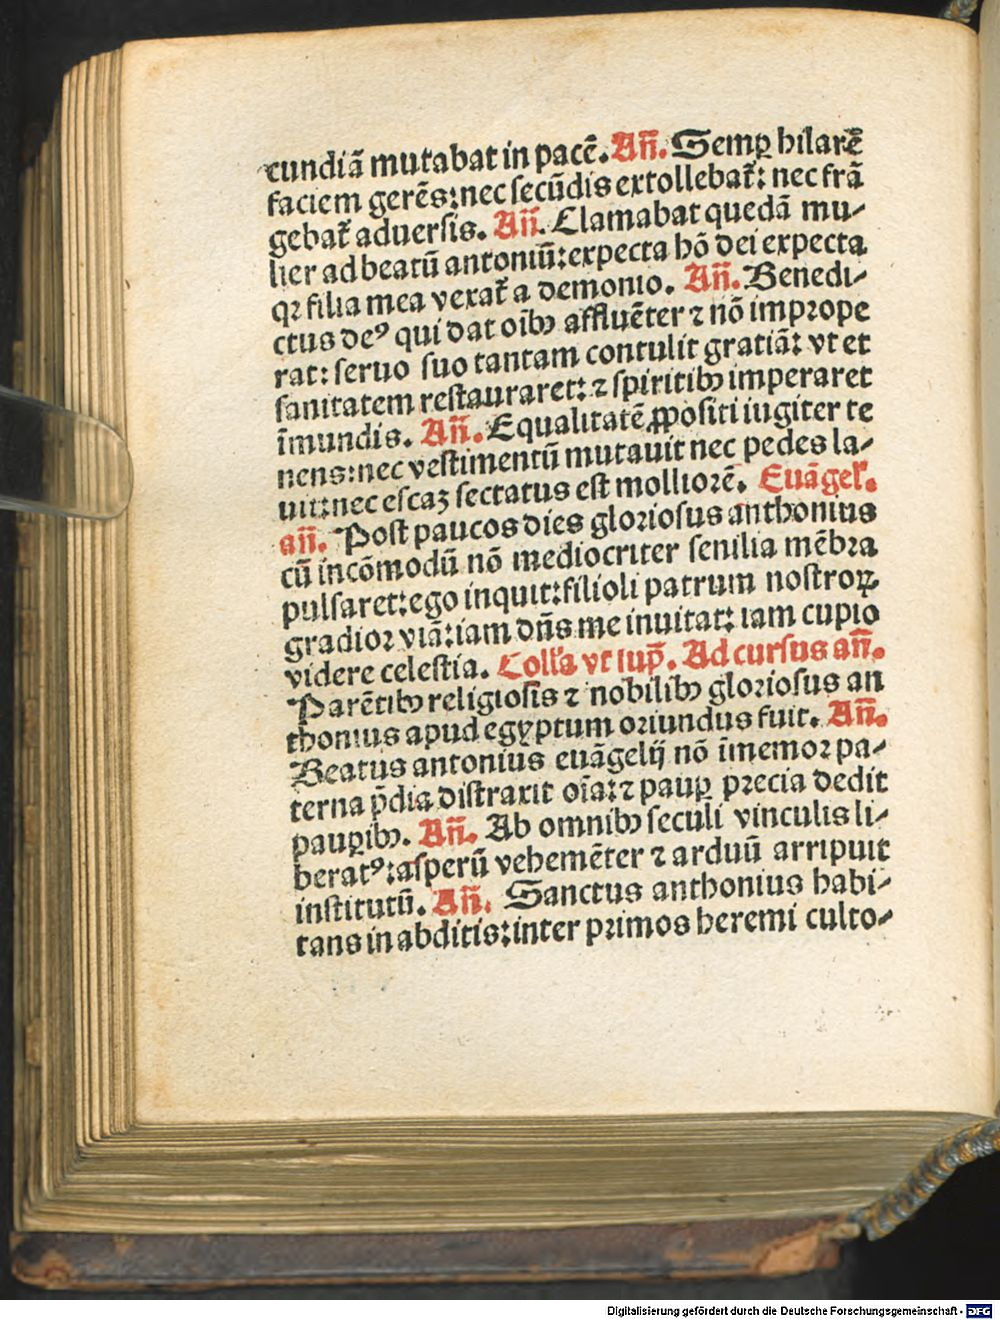 cundiā mutabat in pacē. Añ. Semꝑ hilarē
faciem gerēs: nec secūdis extollebat᷑: nec frā
gebat᷑ aduersis. Añ. Clamabat quedā mu-
lier ad beatū antoniū: expecta hō dei expecta
qꝛ filia mea vexat᷑ a demonio. Añ. Benedi-
ctus deꝰ qui dat oībꝫ affluēter ⁊ nō impꝛope
rat: seruo suo tantam contulit gratiā: vt et
sanitatem restauraret: ⁊ spiritibꝫ imperaret
īmundis. Añ. Equalitatē ꝓpositi iugiter te
nens: nec vestimentū mutauit nec pedes la-
uit: nec escaꝫ sectatus est molliorē. Euāgel'.
añ. Post paucos dies gloꝛiosus anthonius
cū incōmodū nō mediocriter senilia mēbꝛa
pulsaret: ego inquit: filioli patrum nostroꝝ
gradioꝛ viā: iam dn̄s me inuitat: iam cupio
videre celestia. Coll'a vt sup̄. Ad cursus añ.
Parētibꝫ religiosis ⁊ nobilibꝫ gloꝛiosus an
thonius apud egyptum oꝛiundus fuit. Añ.
Beatus antonius euāgelij nō īmemoꝛ pa-
terna p̄dia distraxit oīa: ⁊ pauꝑ pꝛecia dedit
pauꝑibꝫ. Añ. Ab omnibꝫ seculi vinculis li-
beratꝰ: asperū vehemēter ⁊ arduū arripuit
institutū. Añ. Sanctus anthonius habi-
tans in abditis: inter pꝛimos heremi culto-
Digitalisierung gefördert durch die Deutsche Forschungsgemeinschaft - DFG